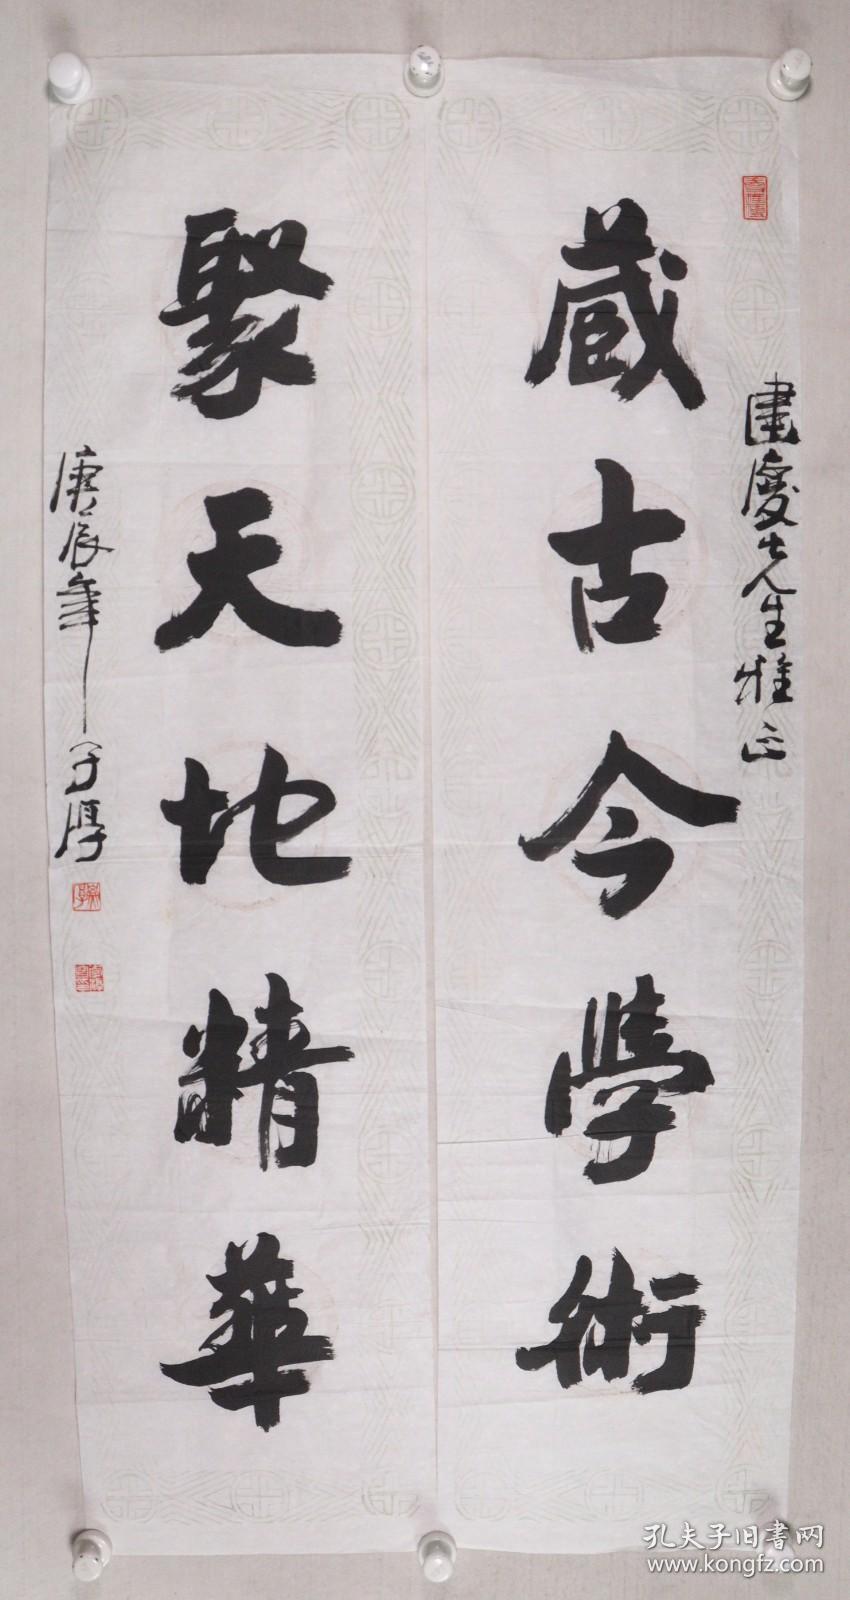 建慶先生雅正
藏古今學術
聚天地精華
庚辰年子厚
孔夫子旧书网
www.kongfz.com